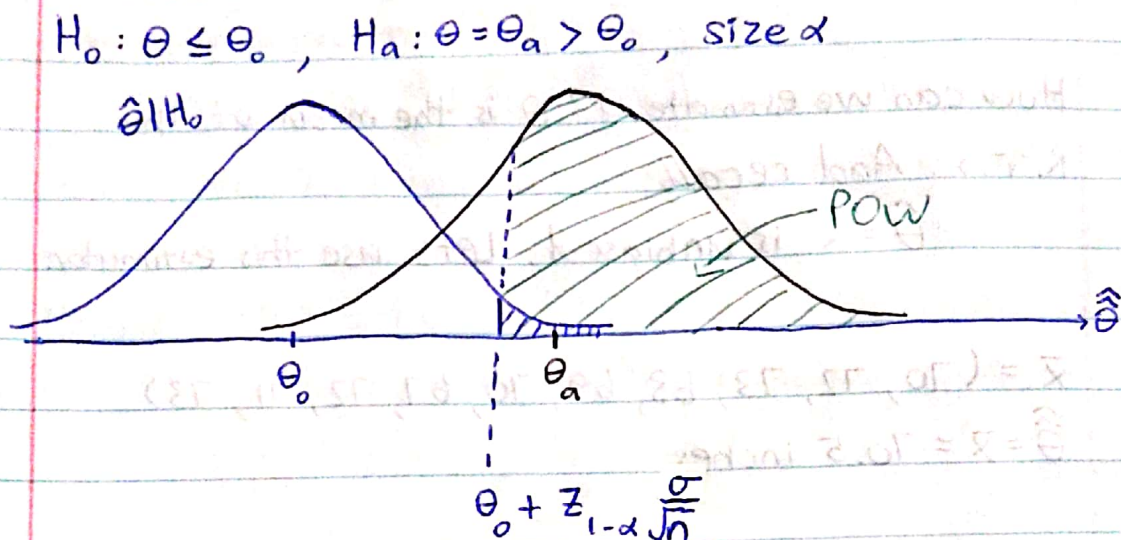 H₀ : θ ≤ θ₀ , Hₐ : θ = θₐ > θ₀ , size α
θ̂|H₀
POW
θ̂̂
θ₀ θₐ
θ₀ + Z₁₋α σ/√n